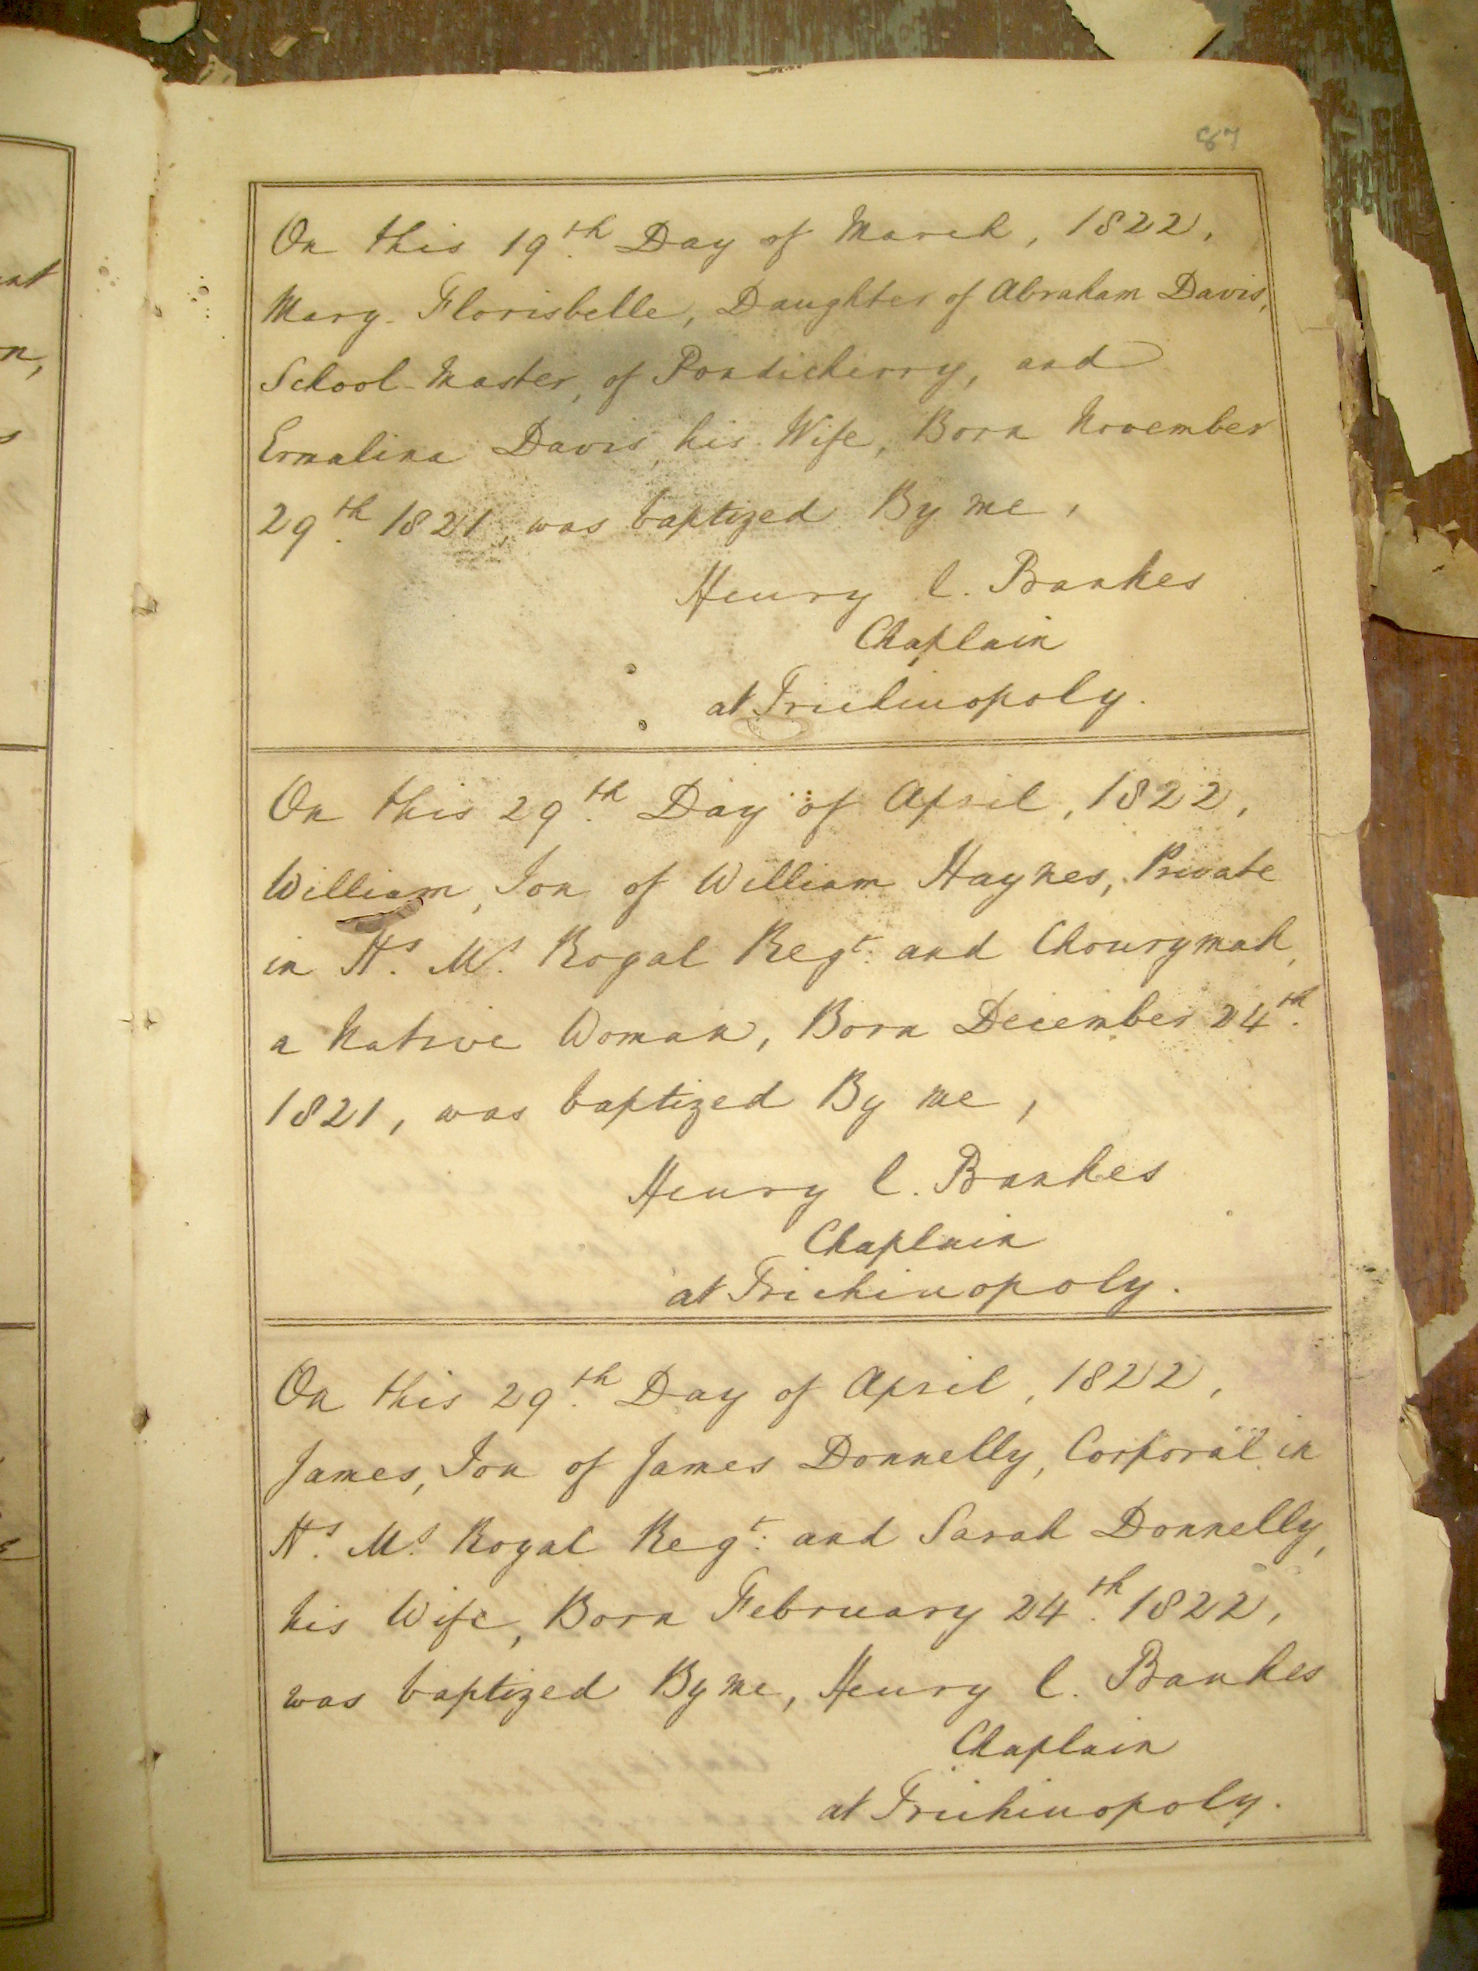 87
On this 19th Day of March, 1822,
Mary Florisbelle, Daughter of Abraham Davis,
School-Master, of Pondicherry, and
Ermalina Davis, his Wife, Born November
29th 1821, was baptized By me,
Henry C. Bankes
Chaplain
at Trichinopoly.
On this 29th Day of April, 1822,
William, Son of William Haynes, Private
in H's. M's. Royal Regt. and Chourymah,
a Native Woman, Born December 24th
1821, was baptized By me,
Henry C. Bankes
Chaplain
at Trichinopoly.
On this 29th Day of April, 1822,
James, Son of James Donnelly, Corporal in
H's. M's. Royal Regt. and Sarah Donnelly,
his Wife, Born February 24th 1822,
was baptized By me, Henry C. Bankes
Chaplain
at Trichinopoly.